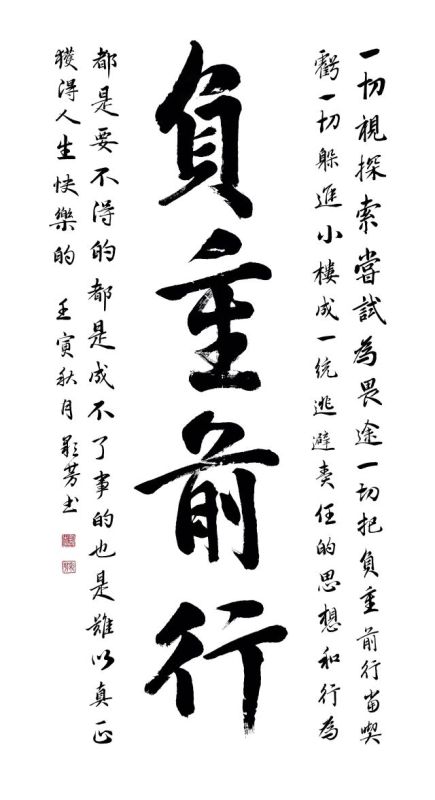 一切視探索嘗試為畏途一切把負重前行當喫
虧一切躲進小樓成一統逃避責任的思想和行為
負重前行
都是要不得的都是成不了事的也是難以真正
獲得人生快樂的 壬寅秋月 芳书